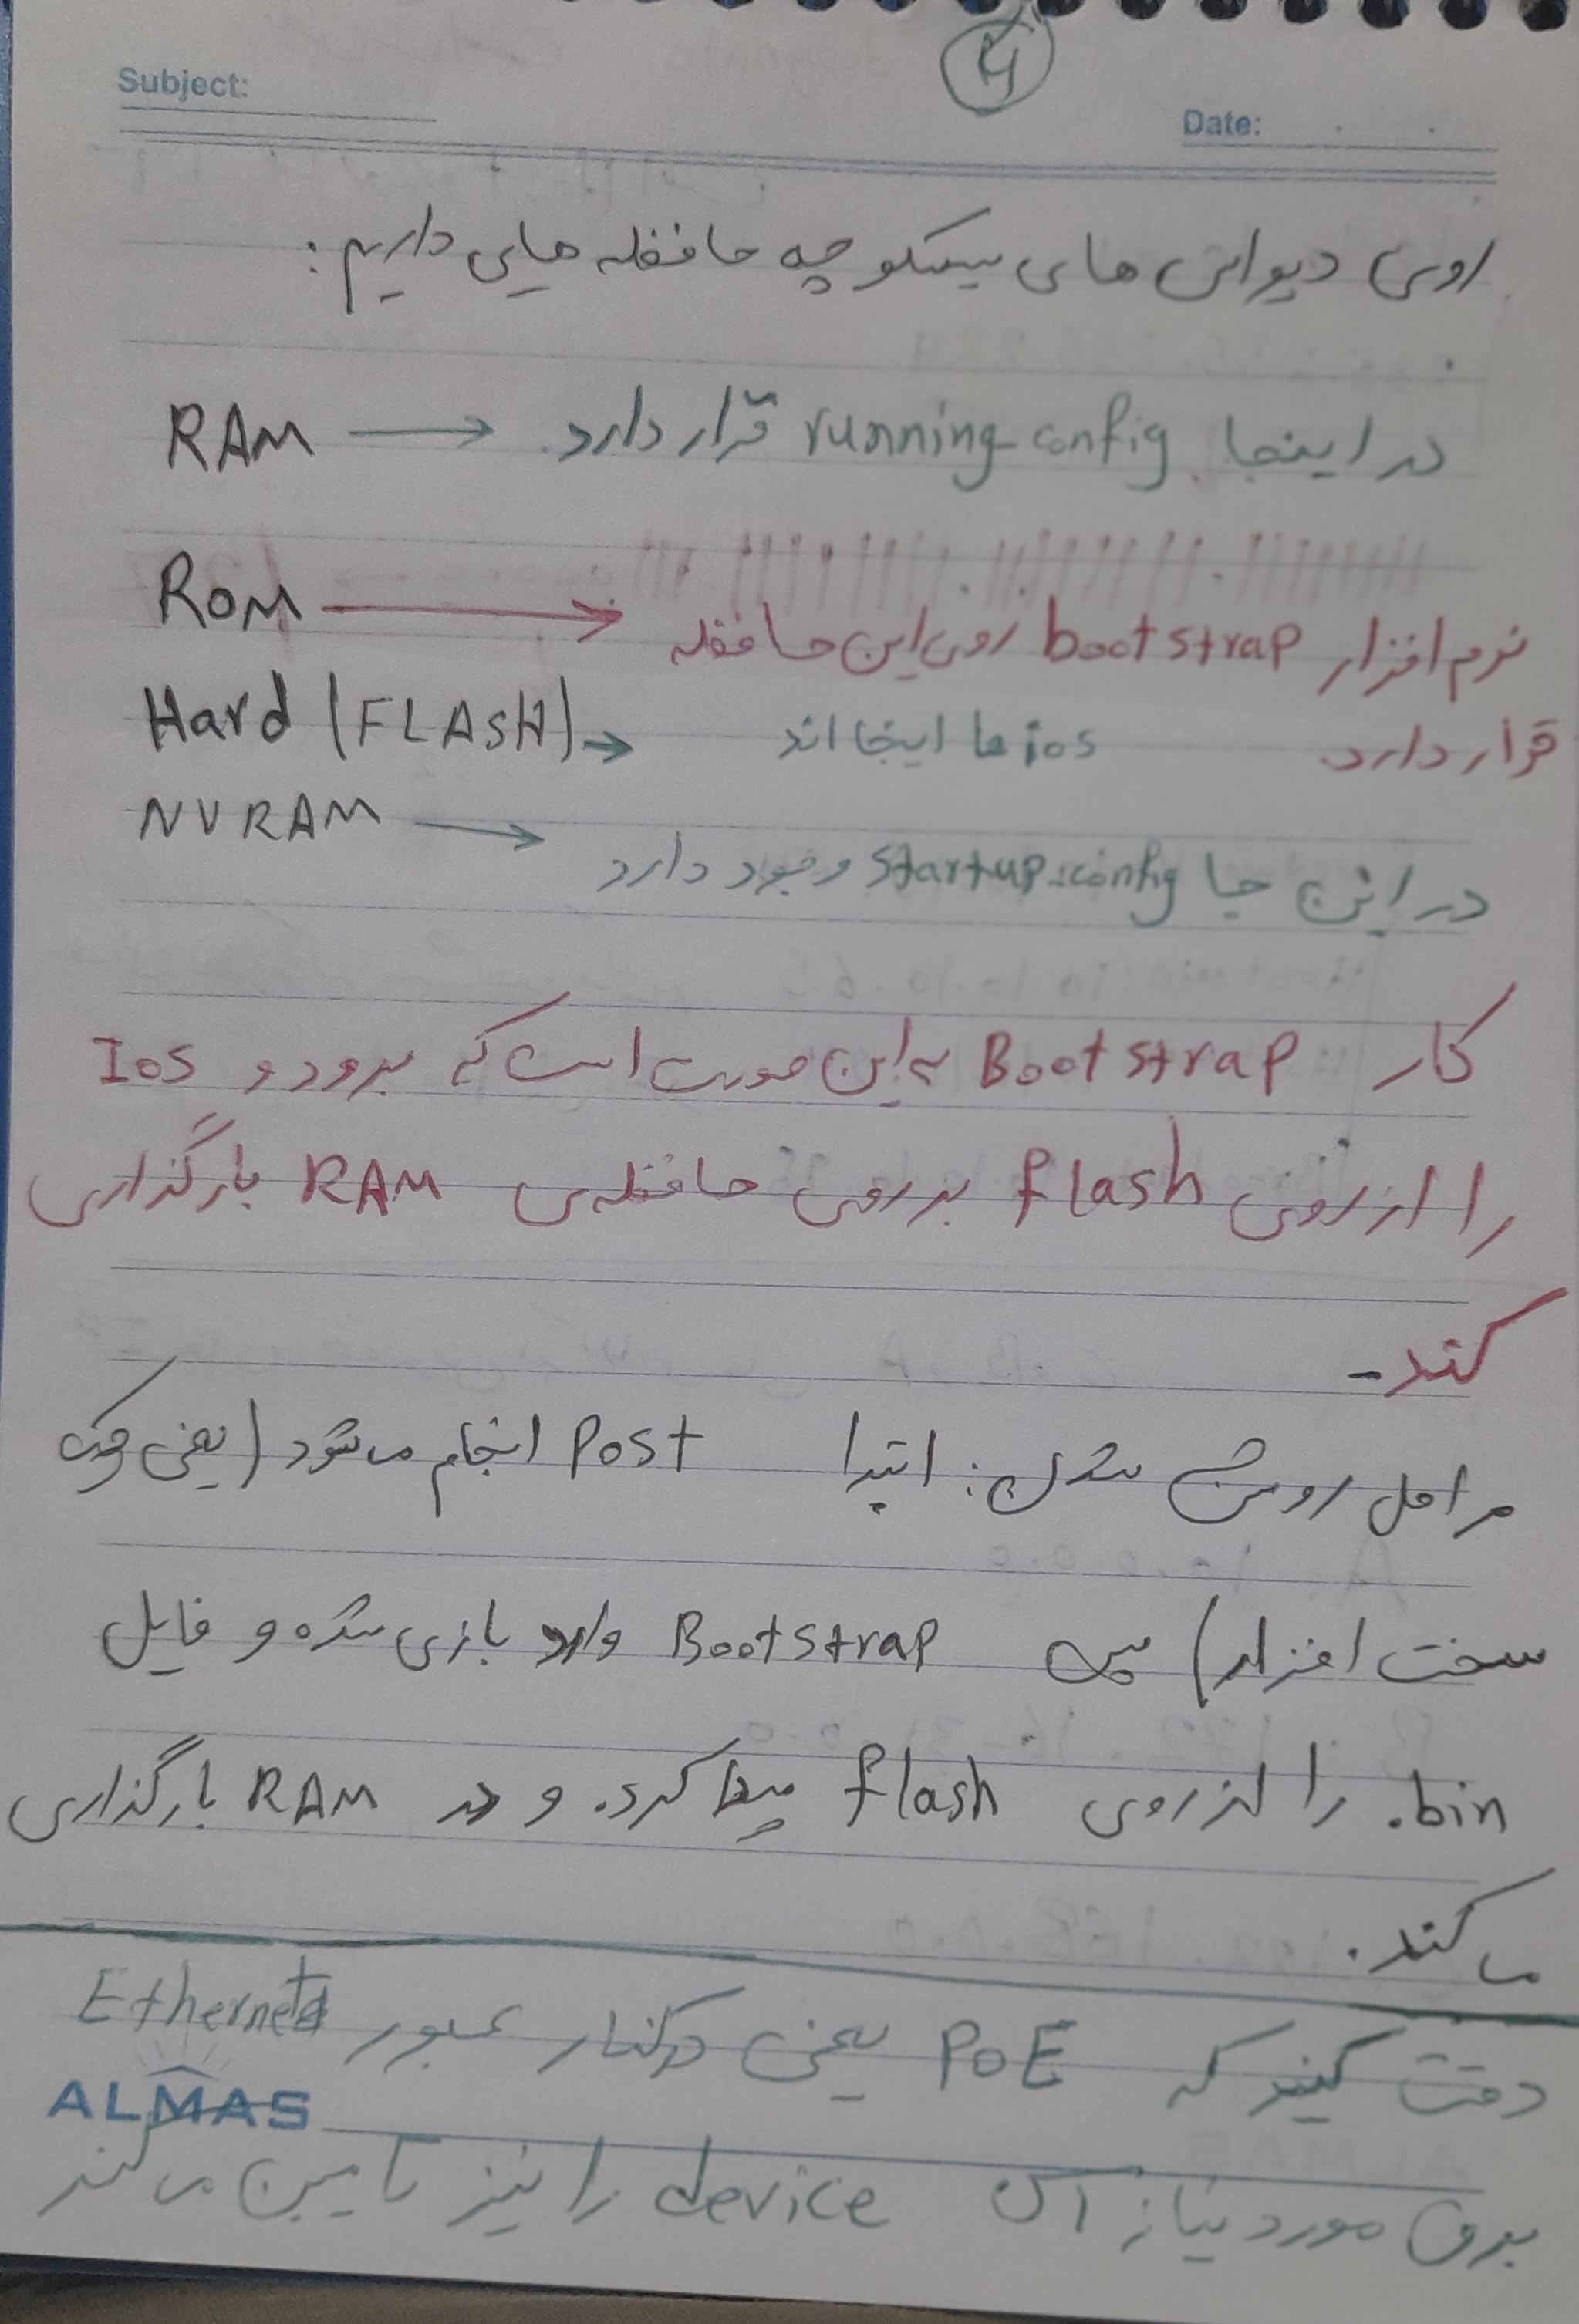 4
Subject:
Date:
روی دیوایس های سیسکو چه حافظه هایی داریم:
RAM → در اینجا running-config قرار دارد.
ROM → نرم افزار bootstrap روی این حافظه
قرار دارد.
Hard (FLASH) → ios ها اینجا اند
NVRAM → در این جا startup-config وجود دارد
کار Bootstrap به این صورت است که برود و Ios
را از روی flash بر روی حافظه‌ی RAM بارگذاری
کند.
مراحل روشن شدن: ابتدا Post انجام می شود (یعنی چک
سخت افزار) پس Bootstrap وارد بازی شده و فایل
.bin را از روی flash پیدا کرده و در RAM بارگذاری
می کند.
دقت کنید که PoE یعنی در کنار عبور Ethernet
برق مورد نیاز آن device را نیز تامین می کند
ALMAS